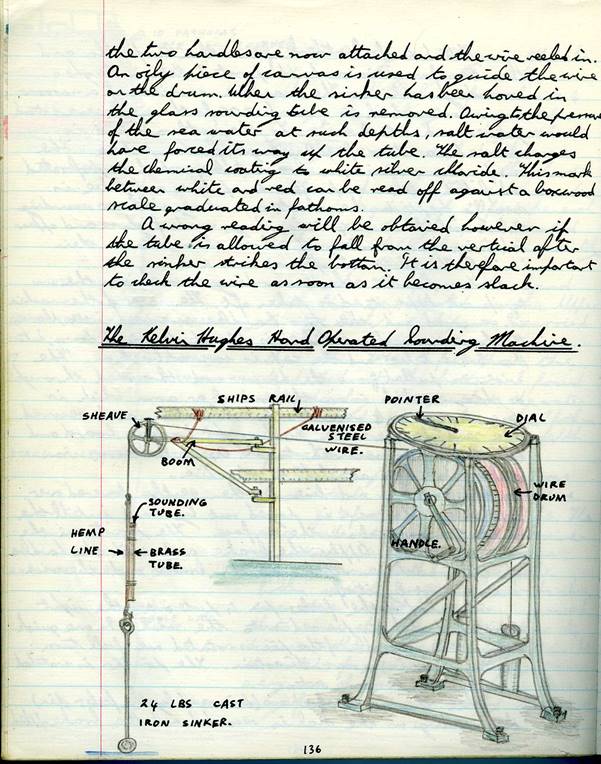 the two handles are now attached and the wire reeled in.
An oily piece of canvas is used to guide the wire
on the drum. When the sinker has been hoved in
the glass sounding tube is removed. Owing to the pressure
of the sea water at such depths, salt water would
have forced its way up the tube. The salt changes
the chemical coating to white silver chloride. This mark
between white and red can be read off against a boxwood
scale graduated in fathoms.
A wrong reading will be obtained however if
the tube is allowed to fall from the vertical after
the sinker strikes the bottom. It is therefore important
to check the wire as soon as it becomes slack.
The Kelvin Hughes Hand Operated Sounding Machine.
SHIPS RAIL
SHEAVE
GALVANISED
STEEL
WIRE.
BOOM
SOUNDING
TUBE.
HEMP
LINE
BRASS
TUBE.
24 LBS CAST
IRON SINKER.
POINTER
DIAL
WIRE
DRUM
HANDLE.
136